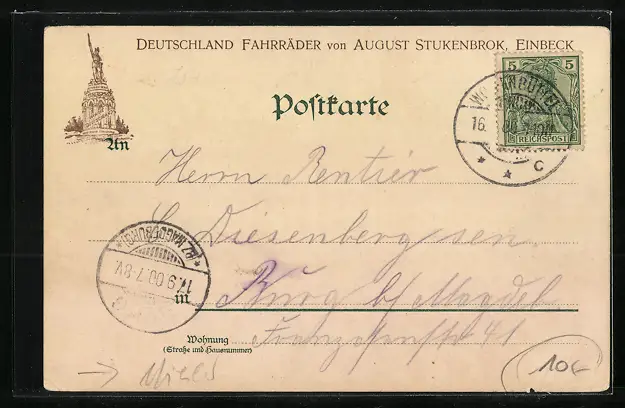 DEUTSCHLAND FAHRRÄDER VON AUGUST STUKENBROK, EINBECK
5 5
REICHSPOST
Postkarte
16.
C
An
Herrn Rentier
Diesenberg sen.
in Burg b/ Magdeb
17.9.00.7-8V.
Wohnung
(Straße und Hausnummer)
41
10€